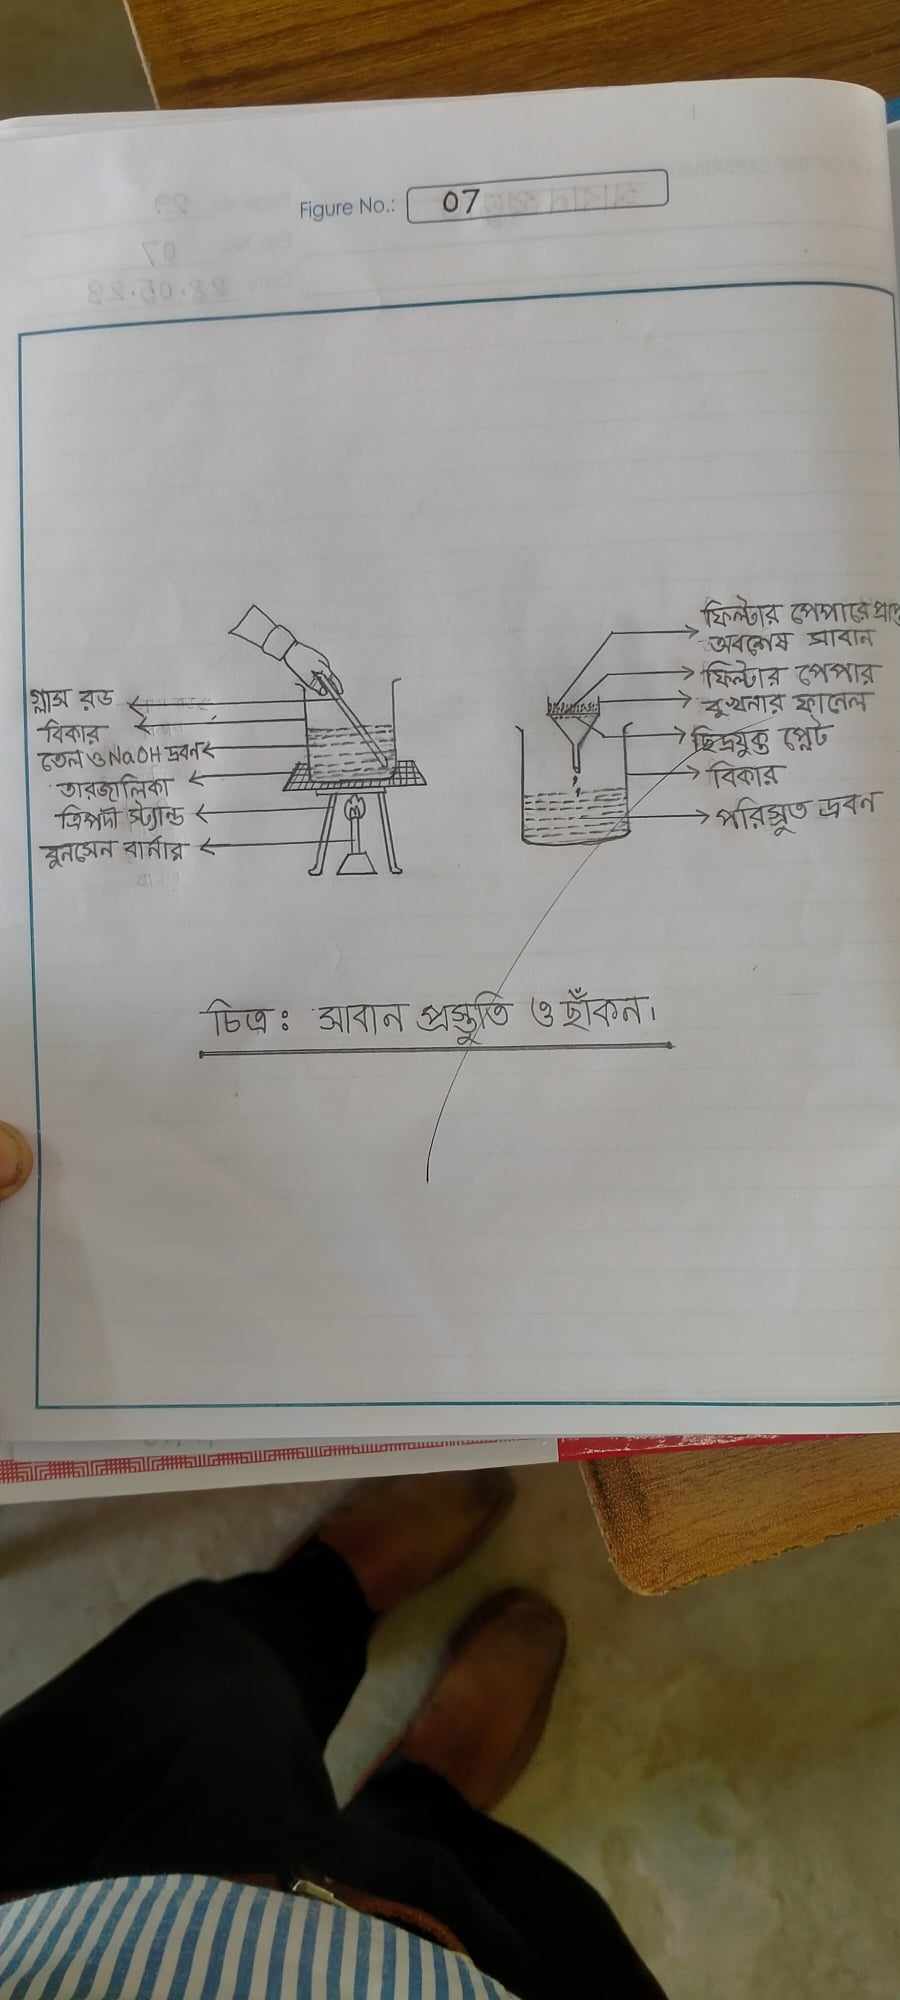 Figure No.: 07
গ্লাস রড
বিকার
তেল ও NaOH দ্রবন
তারজালিকা
ত্রিপদী স্ট্যান্ড
বুনসেন বার্নার
ফিল্টার পেপারে
অবশেষ সাবান
ফিল্টার পেপার
বুখনার ফানেল
ছিদ্রযুক্ত প্লেট
বিকার
পরিস্রুত দ্রবন
চিত্র: সাবান প্রস্তুতি ও ছাঁকন।